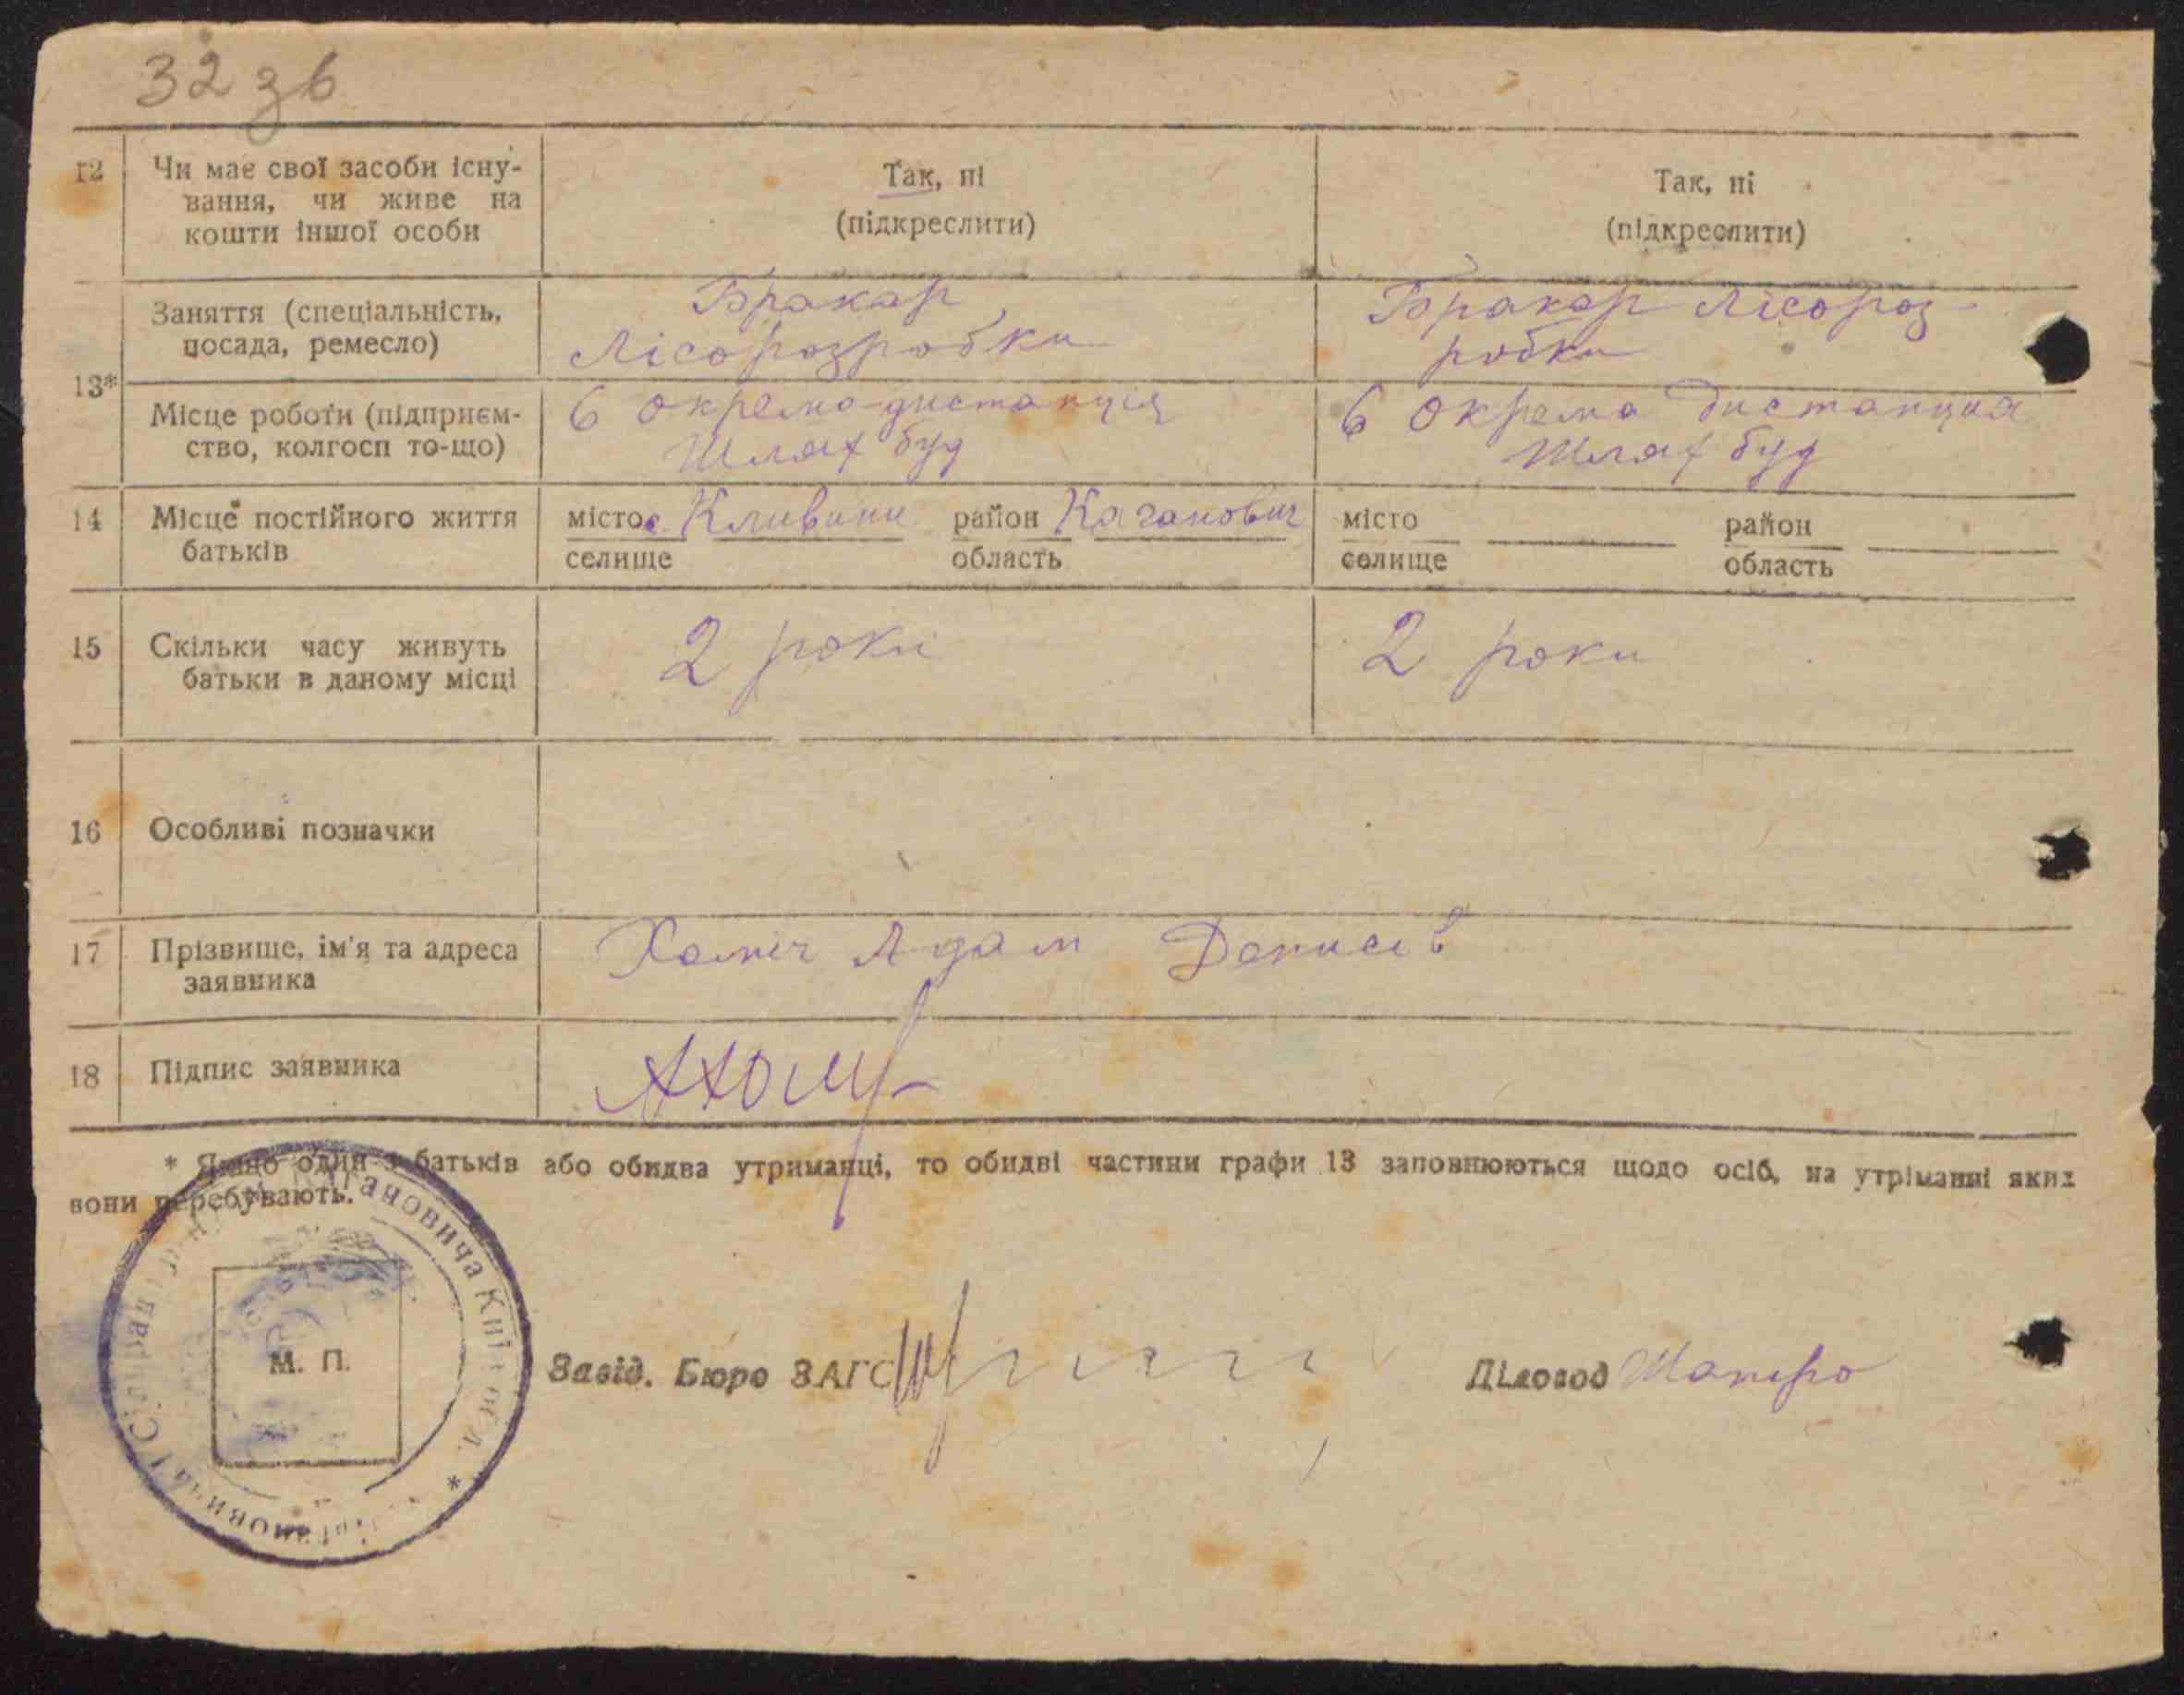 32 зв
12 Чи має свої засоби існу- Так, ні Так, ні
вання, чи живе на
кошти іншої особи (підкреслити) (підкреслити)
Заняття (спеціальність, Бракар Бракар лісороз
посада, ремесло) Лісорозробки робки
13*
Місце роботи (підприєм- 6 окрема дистанція 6 окрема дистанция
ство, колгосп то-що) Шлях буд Шлях буд
14 Місце постійного життя місто с. Кливини район Каганович місто район
батьків селище область селище область
15 Скільки часу живуть 2 роки 2 роки
батьки в даному місці
16 Особливі позначки
17 Прізвище, ім'я та адреса Хоміч Адам Денисів
заявника
18 Підпис заявника
* Якщо один з батьків або обидва утриманці, то обидві частини графи 13 заповнюються щодо осіб, на утріманні яких
вони перебувають.
Кагановича Київ обл. *
М. П.
Завід. Бюро ЗАГС Діловод Шапіро